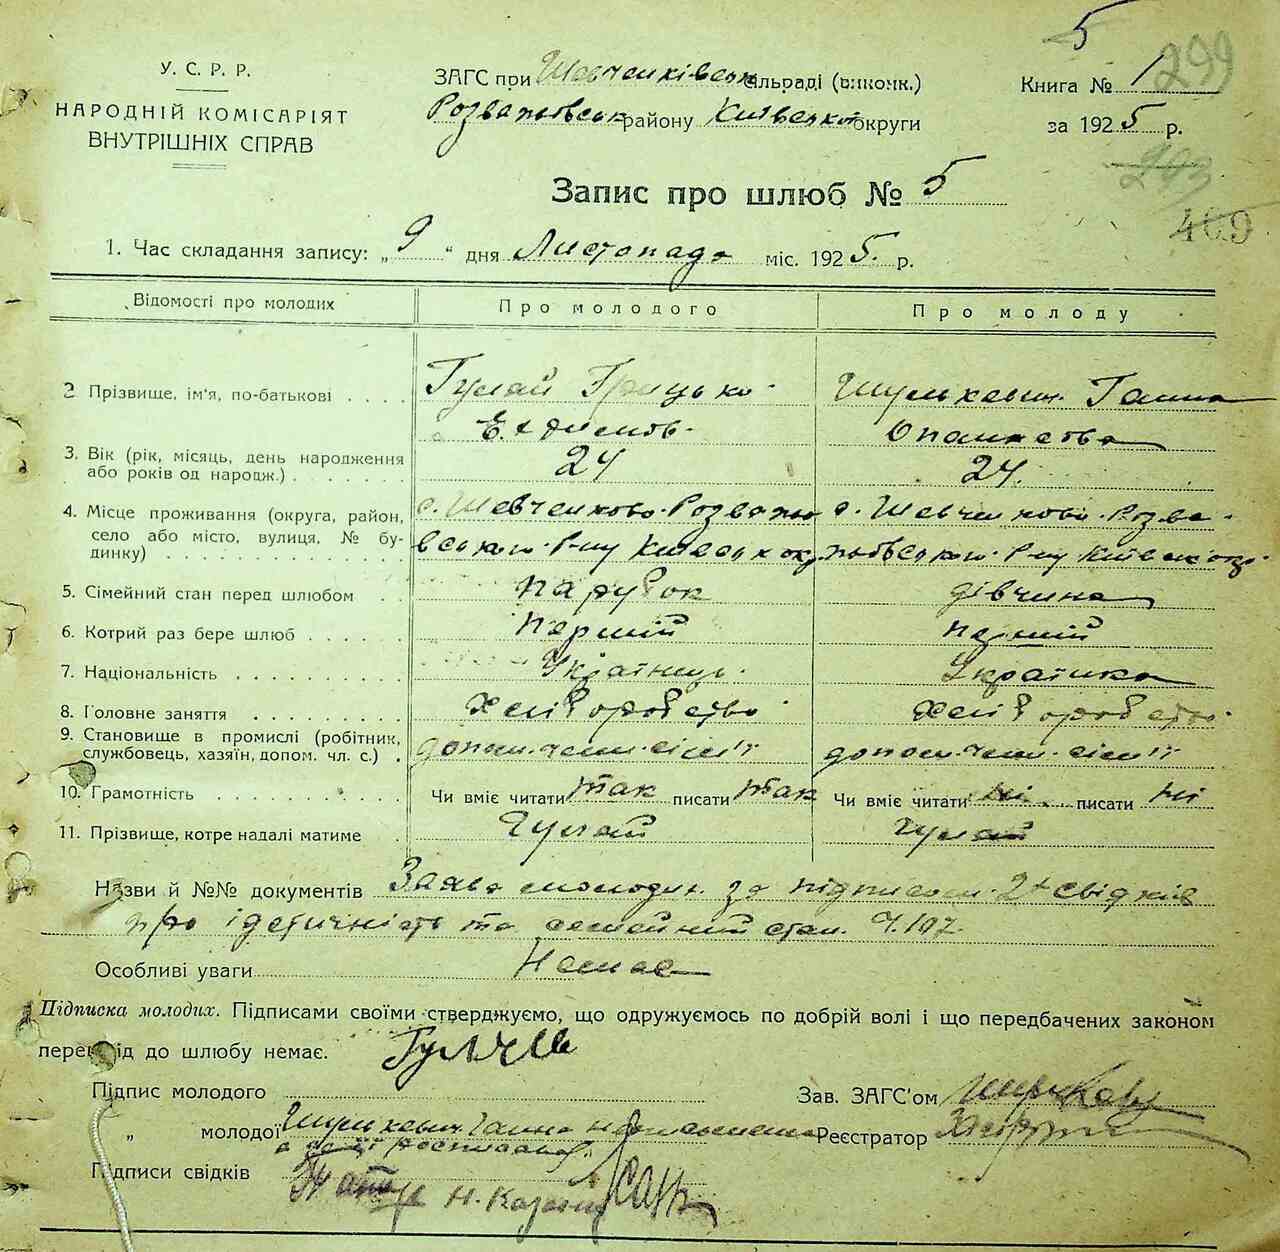 5
У. С. Р. Р.
НАРОДНІЙ КОМІСАРІЯТ
ВНУТРІШНІХ СПРАВ
ЗАГС при Шевченківськ сільраді (викочк.)
Розважівськ району Київської округи
Книга № 1 299
за 1925 р.
293
409
Запис про шлюб № 5
1. Час складання запису: „ 9 " дня Листопада міс. 1925. р.
Відомості про молодих Про молодого Про молоду
2 Прізвище, ім'я, по-батькові . . . . Гулай Грицько Шулькевич Ганна
Опанасова
3. Вік (рік, місяць, день народження або років од народж.) . . . . 24 24.
4. Місце проживання (округа, район, село або місто, вулиця, № будинку) . . . . с. Шевченково Розважівського Р-ну Київськ окр с. Шевченково Розважівського Р-ну Київськ окр
5. Сімейний стан перед шлюбом . . парубок дівчина
6. Котрий раз бере шлюб . . . . . перший перший
7. Національність . . . . . . . . . Українець Українка
8. Головне заняття . . . . . . . . Хліборобство Хліборобство
9. Становище в промислі (робітник, службовець, хазяїн, допом. чл. с.) . допом. член. сім'ї допом. член. сім'ї
10. Грамотність . . . . . . . . . . Чи вміє читати так писати так Чи вміє читати ні писати ні
11. Прізвище, котре надалі матиме . Гулай Гулай
Назви й №№ документів Заява молодих. за підписом 2х свідків
про ідетичність та семейний стан. Ч. 107.
Особливі уваги Немає
Підписка молодих. Підписами своїми стверджуємо, що одружуємось по добрій волі і що передбачених законом
перешкід до шлюбу немає.
Підпис молодого
Зав. ЗАГС'ом
„ молодої Шулькевич Ганна неписьменна
Реєстратор
а за неї росписався
Підписи свідків